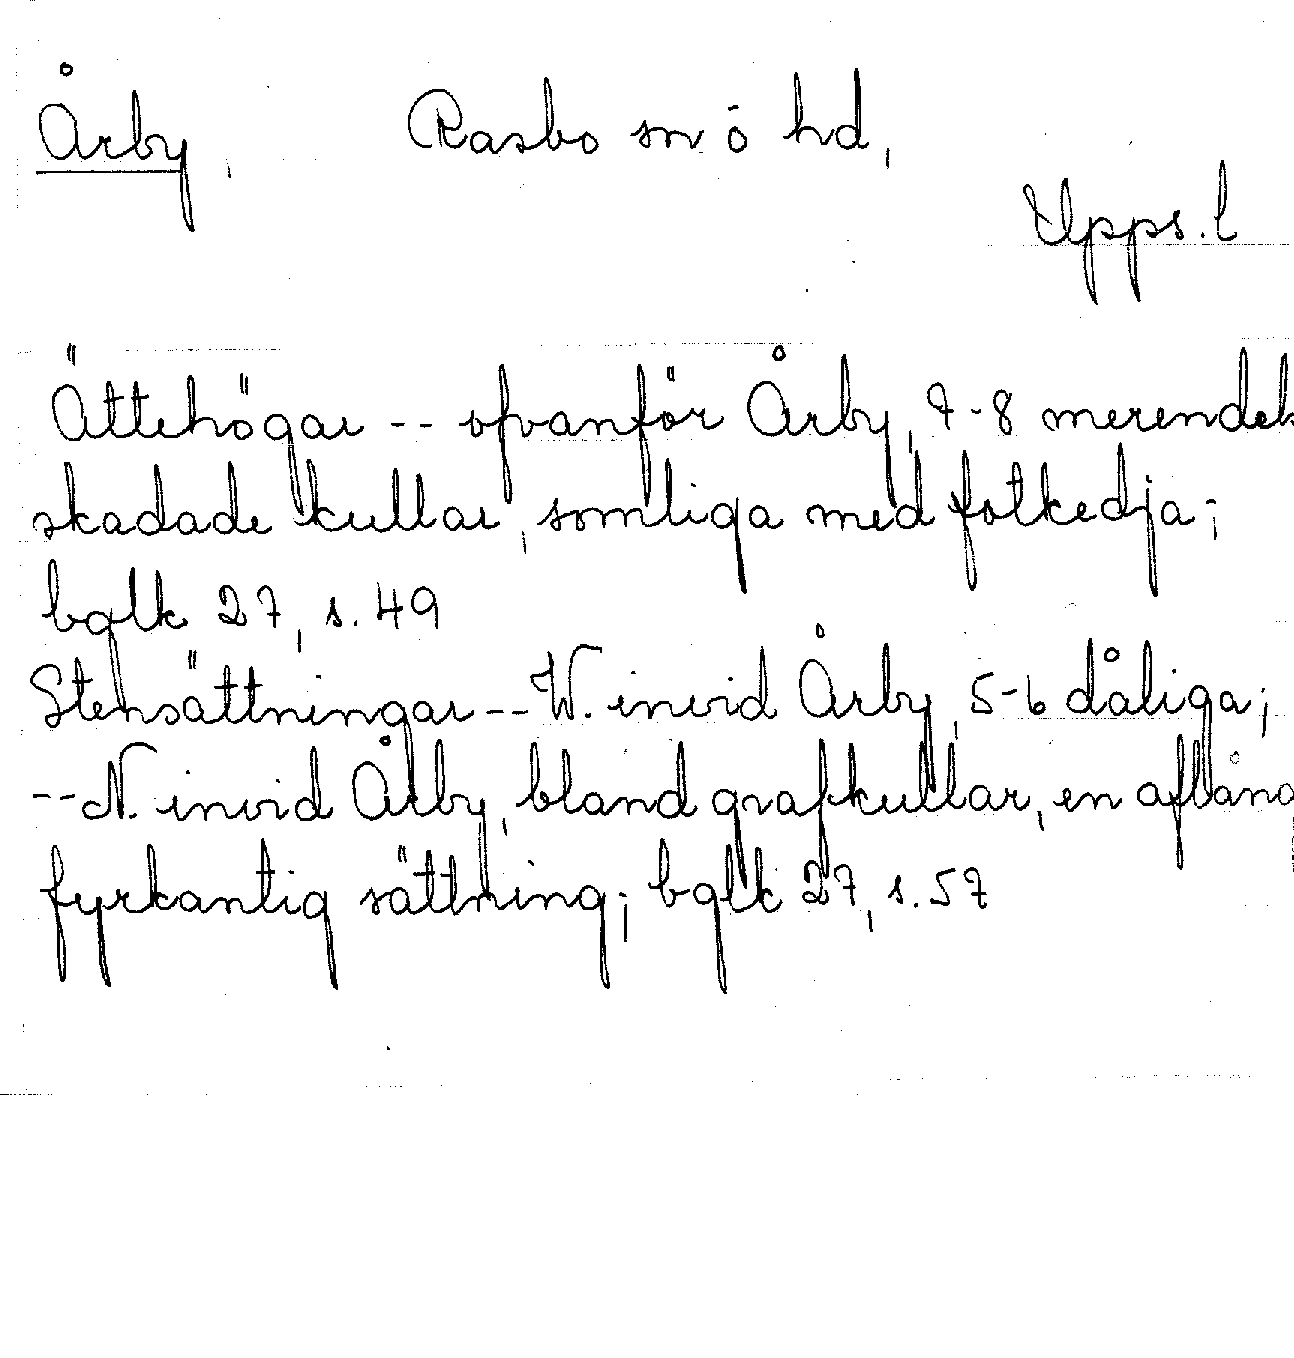 Årby, Rasbo sn o hd,
Upps. l
Ättehögar -- ofvanför Årby, 7-8 merendels
skadade kullar, somliga med fotkedja;
bglk 27, s. 49
Stensättningar -- W. invid Årby, 5-6 dåliga;
-- N. invid Årby, bland grafkullar, en aflång
fyrkantig sättning; bglk 27, s. 57